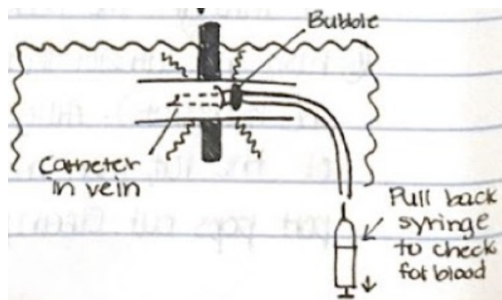 Bubble
Catheter
in vein
Pull back
syringe
to check
for blood